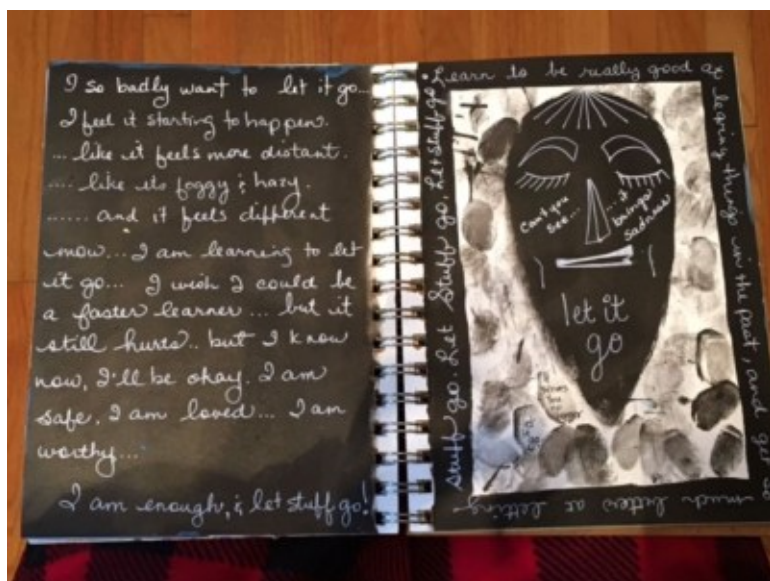 I so badly want to let it go...
I feel it starting to happen.
... like it feels more distant.
.... like its foggy & hazy.
...... and it feels different
now... I am learning to let
it go... I wish I could be
a faster learner... but it
still hurts.. but I know
now, I'll be okay. I am
safe. I am loved... I am
worthy...
I am enough, & let stuff go!
Learn to be really good at
leaving things in the past, and get so
much better at letting
Stuff go. Let Stuff go. Let stuff go.
Can't you
see...
...it
brings
sadness
let it
go